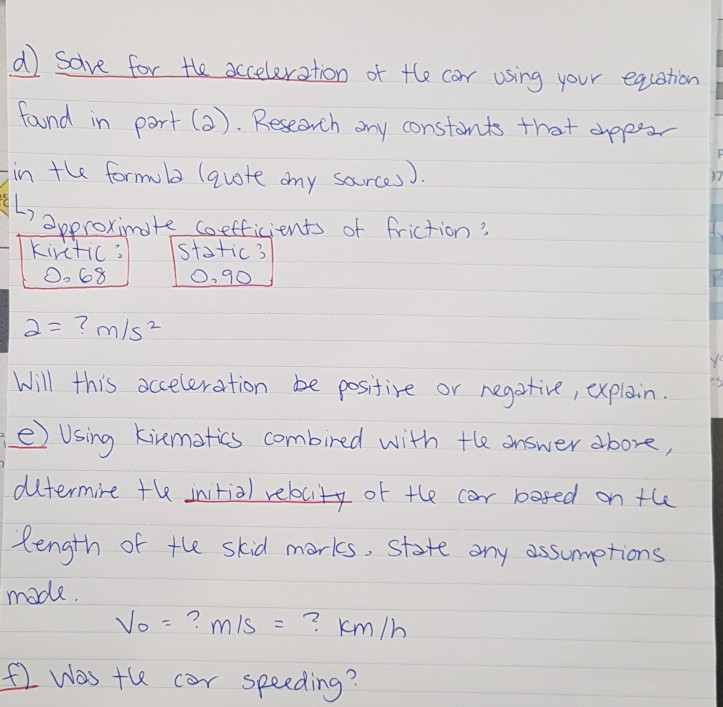 d) Solve for the acceleration of the car using your equation
found in part (a). Research any constants that appear
in the formula (quote any sources).
↳ approximate coefficients of friction:
Kinetic: Static:
0.68 0.90
a = ? m/s²
Will this acceleration be positive or negative, explain.
e) Using kinematics combined with the answer above,
determine the initial velocity of the car based on the
length of the skid marks. State any assumptions
made.
V₀ = ? m/s = ? km/h
f) Was the car speeding?